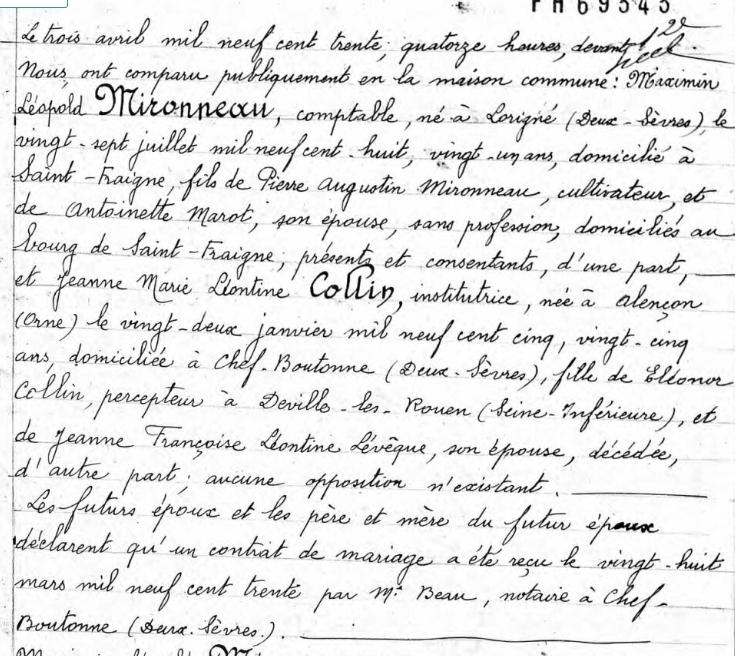 PH69545
Le trois avril mil neuf cent trente, quatorze heures, devant
Nous, ont comparu publiquement en la maison commune : Maximin
Léopold Mironneau, comptable, né à Lorigné (Deux-Sèvres), le
vingt-sept juillet mil neuf cent-huit, vingt-un ans, domicilié à
Saint-Fraigne, fils de Pierre Augustin Mironneau, cultivateur, et
de Antoinette Marot, son épouse, sans profession, domiciliés au
bourg de Saint-Fraigne, présents et consentants, d'une part,
et Jeanne Marie Léontine Collin, institutrice, née à Alençon
(Orne) le vingt-deux janvier mil neuf cent cinq, vingt-cinq
ans, domiciliée à Chef-Boutonne (Deux-Sèvres), fille de Eléonor
Collin, percepteur à Deville-les-Rouen (Seine-Inférieure), et
de Jeanne Françoise Léontine Lévêque, son épouse, décédée,
d'autre part ; aucune opposition n'existant.
Les futurs époux et les père et mère du futur époux
déclarent qu'un contrat de mariage a été reçu le vingt-huit
mars mil neuf cent trente par Me Beau, notaire à Chef-
Boutonne (Deux-Sèvres).